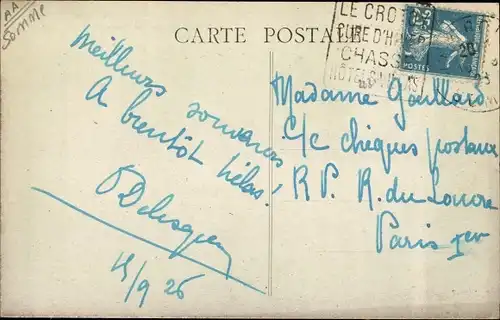 AA
Somme
CARTE POSTA
LE CROT
CURE D'H
CHASS
meilleurs souvenirs
A bientôt hélas!
15/9 26
Madame Gaillard
C/c chèques postaux
R.P. R. du Louvre
Paris Ier